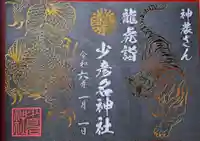 神農さん
龍虎詣
少彦名神社
令和六年一月一日